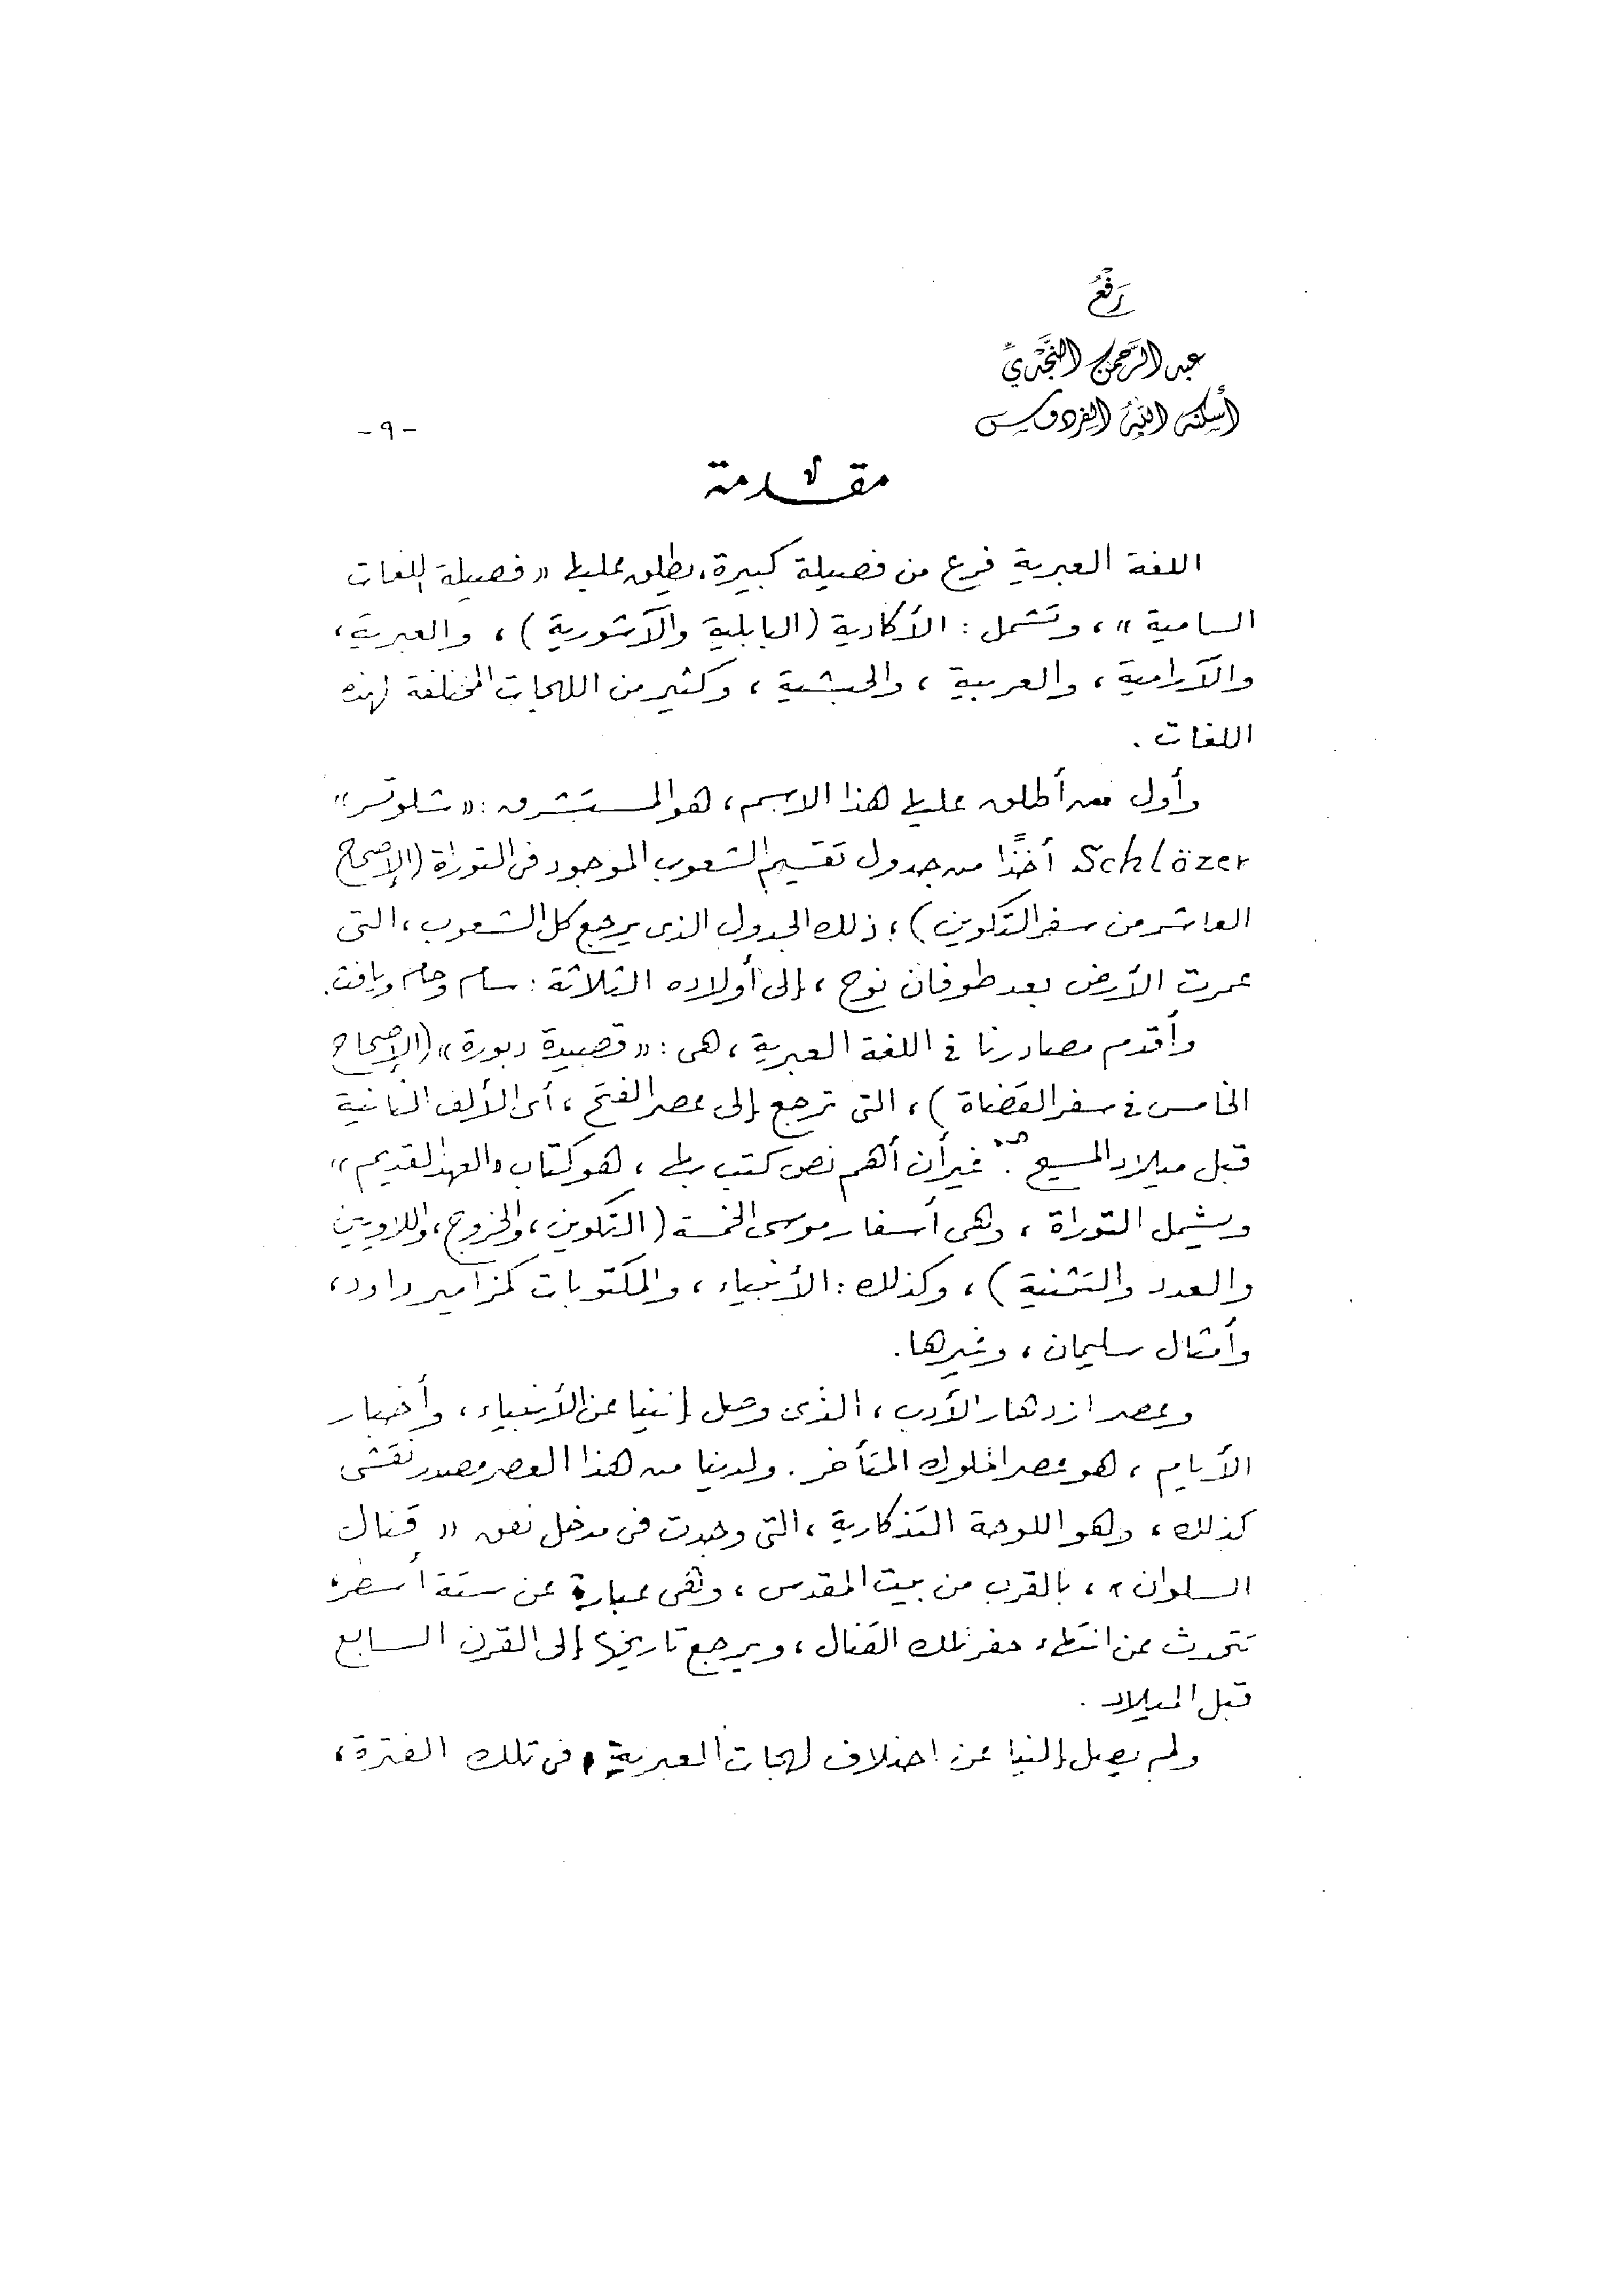 رَفْعُ
عبد الرَّحمن النَّجْديِّ
أسكنه اللهُ الفردوس
- ٩ -
مقدمة
اللغة العبرية فرع من فصيلة كبيرة، يطلق عليها «فصيلة اللغات
السامية»، وتشمل: الأكادية (البابلية والآشورية)، والعبرية،
والآرامية، والعربية، والحبشية، وكثير من اللهجات المختلفة لهذه
اللغات.
وأول من أطلق عليها هذا الاسم، هو المستشرق: «شلوتسر»
Schlözer أخذًا من جدول تقسيم الشعوب الموجود فى التوراة (الإصحاح
العاشر من سفر التكوين)؛ ذلك الجدول الذى يرجع كل الشعوب، التى
عمرت الأرض بعد طوفان نوح، إلى أولاده الثلاثة: سام وحام ويافث.
وأقدم مصادرنا فى اللغة العبرية، هى: «قصيدة دبورة» (الإصحاح
الخامس فى سفر القضاة)، التى ترجع إلى عصر الفتح، أى الألف الثانية
قبل ميلاد المسيح. غير أن أهم نص كتب بها، هو كتاب «العهد القديم»
ويشمل التوراة، وهى أسفار موسى الخمسة (التكوين، والخروج، واللاويين
والعدد والتثنية)، وكذلك: الأنبياء، والمكتوبات كمزامير داود،
وأمثال سليمان، وغيرها.
وعصر ازدهار الأدب، الذى وصل إلينا عن الأنبياء، وأخبار
الأيام، هو عصر الملوك المتأخر. ولدينا من هذا العصر مصدر نقشى
كذلك، وهو اللوحة التذكارية، التى وجدت فى مدخل نفق «قنال
السلوان»، بالقرب من بيت المقدس، وهى عبارة عن ستة أسطر،
تتحدث عن انتهاء حفر تلك القنال، ويرجع تاريخها إلى القرن السابع
قبل الميلاد.
ولم يصل إلينا عن اختلاف لهجات العبرية، فى تلك الفترة،